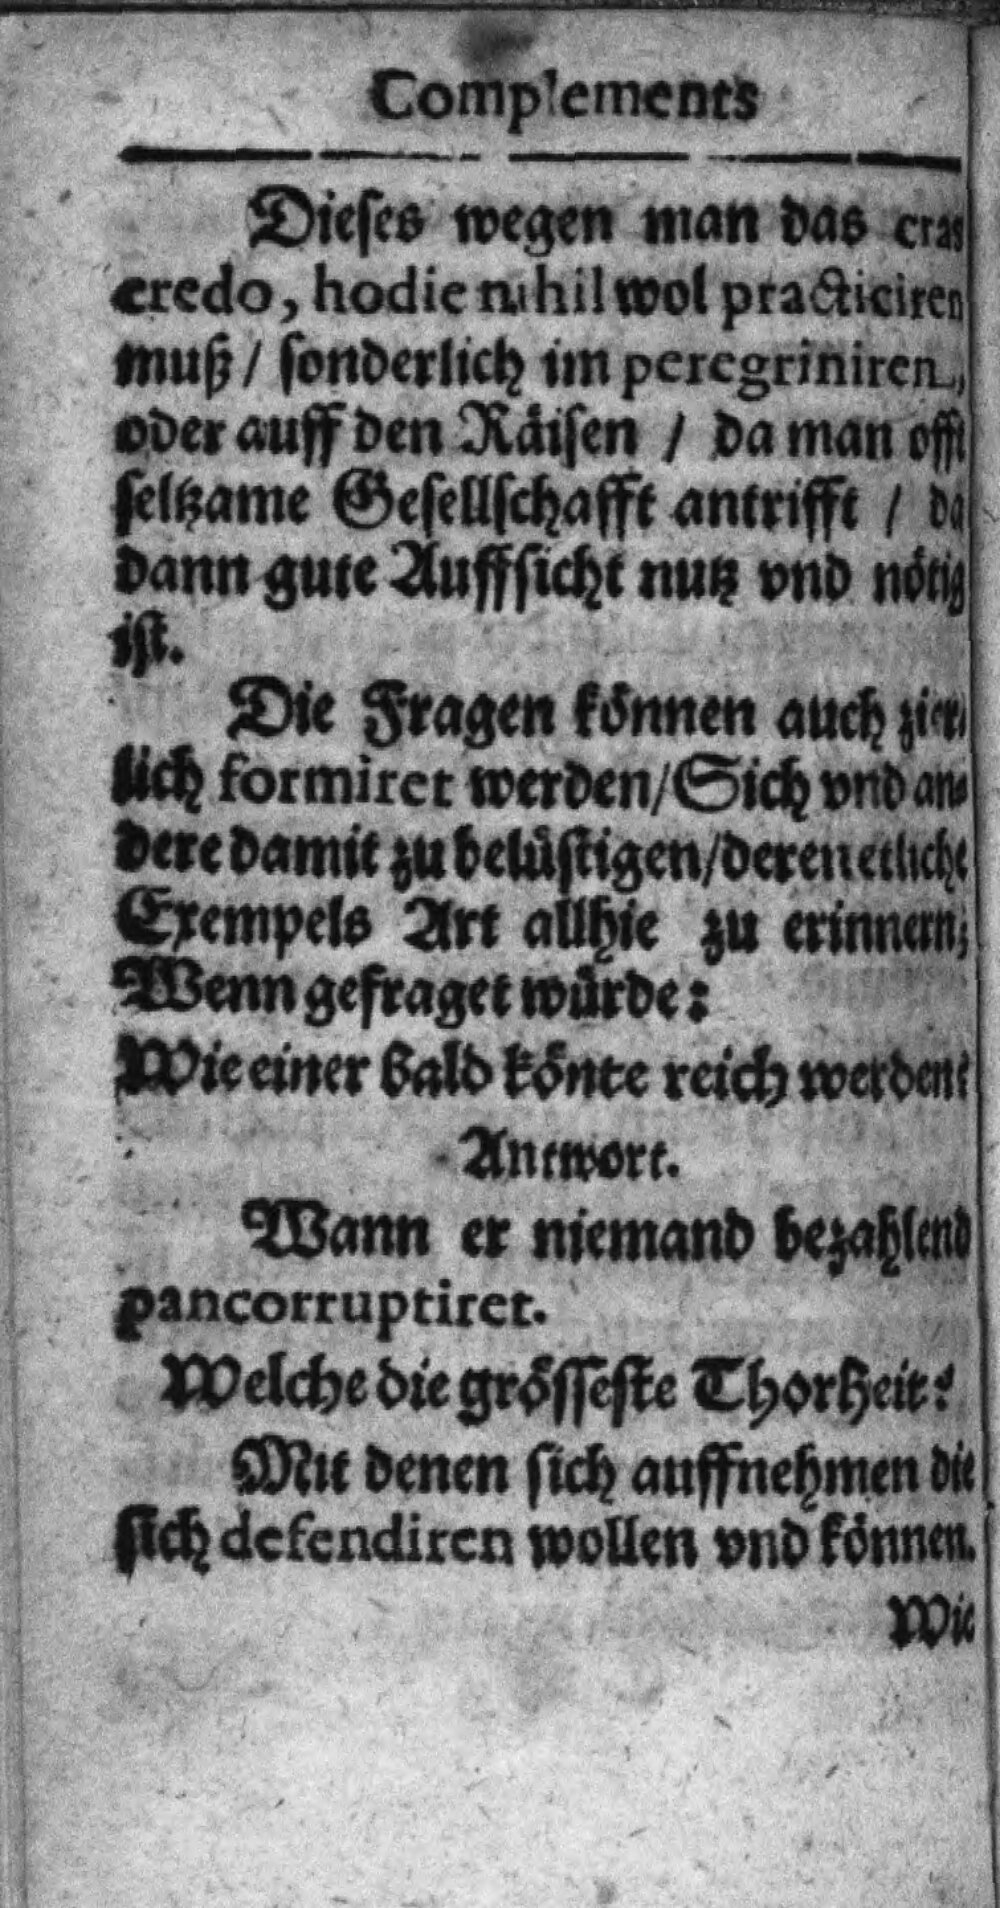 Complements
Dieses wegen man das cras
credo, hodie nihil wol practiciren
muß / sonderlich im peregriniren,
oder auff den Räisen / da man offt
seltzame Gesellschafft antrifft / da
dann gute Auffsicht nutz vnd nötig
ist.
Die Fragen können auch zier-
lich formiret werden/Sich vnd an-
dere damit zu belüstigen/deren etliche
Exempels Art allhie zu erinnern;
Wenn gefraget würde:
Wie einer bald könte reich werden?
Antwort.
Wann er niemand bezahlend
pancorruptiret.
Welche die grösseste Thorheit?
Mit denen sich auffnehmen die
sich defendiren wollen vnd können.
Wie